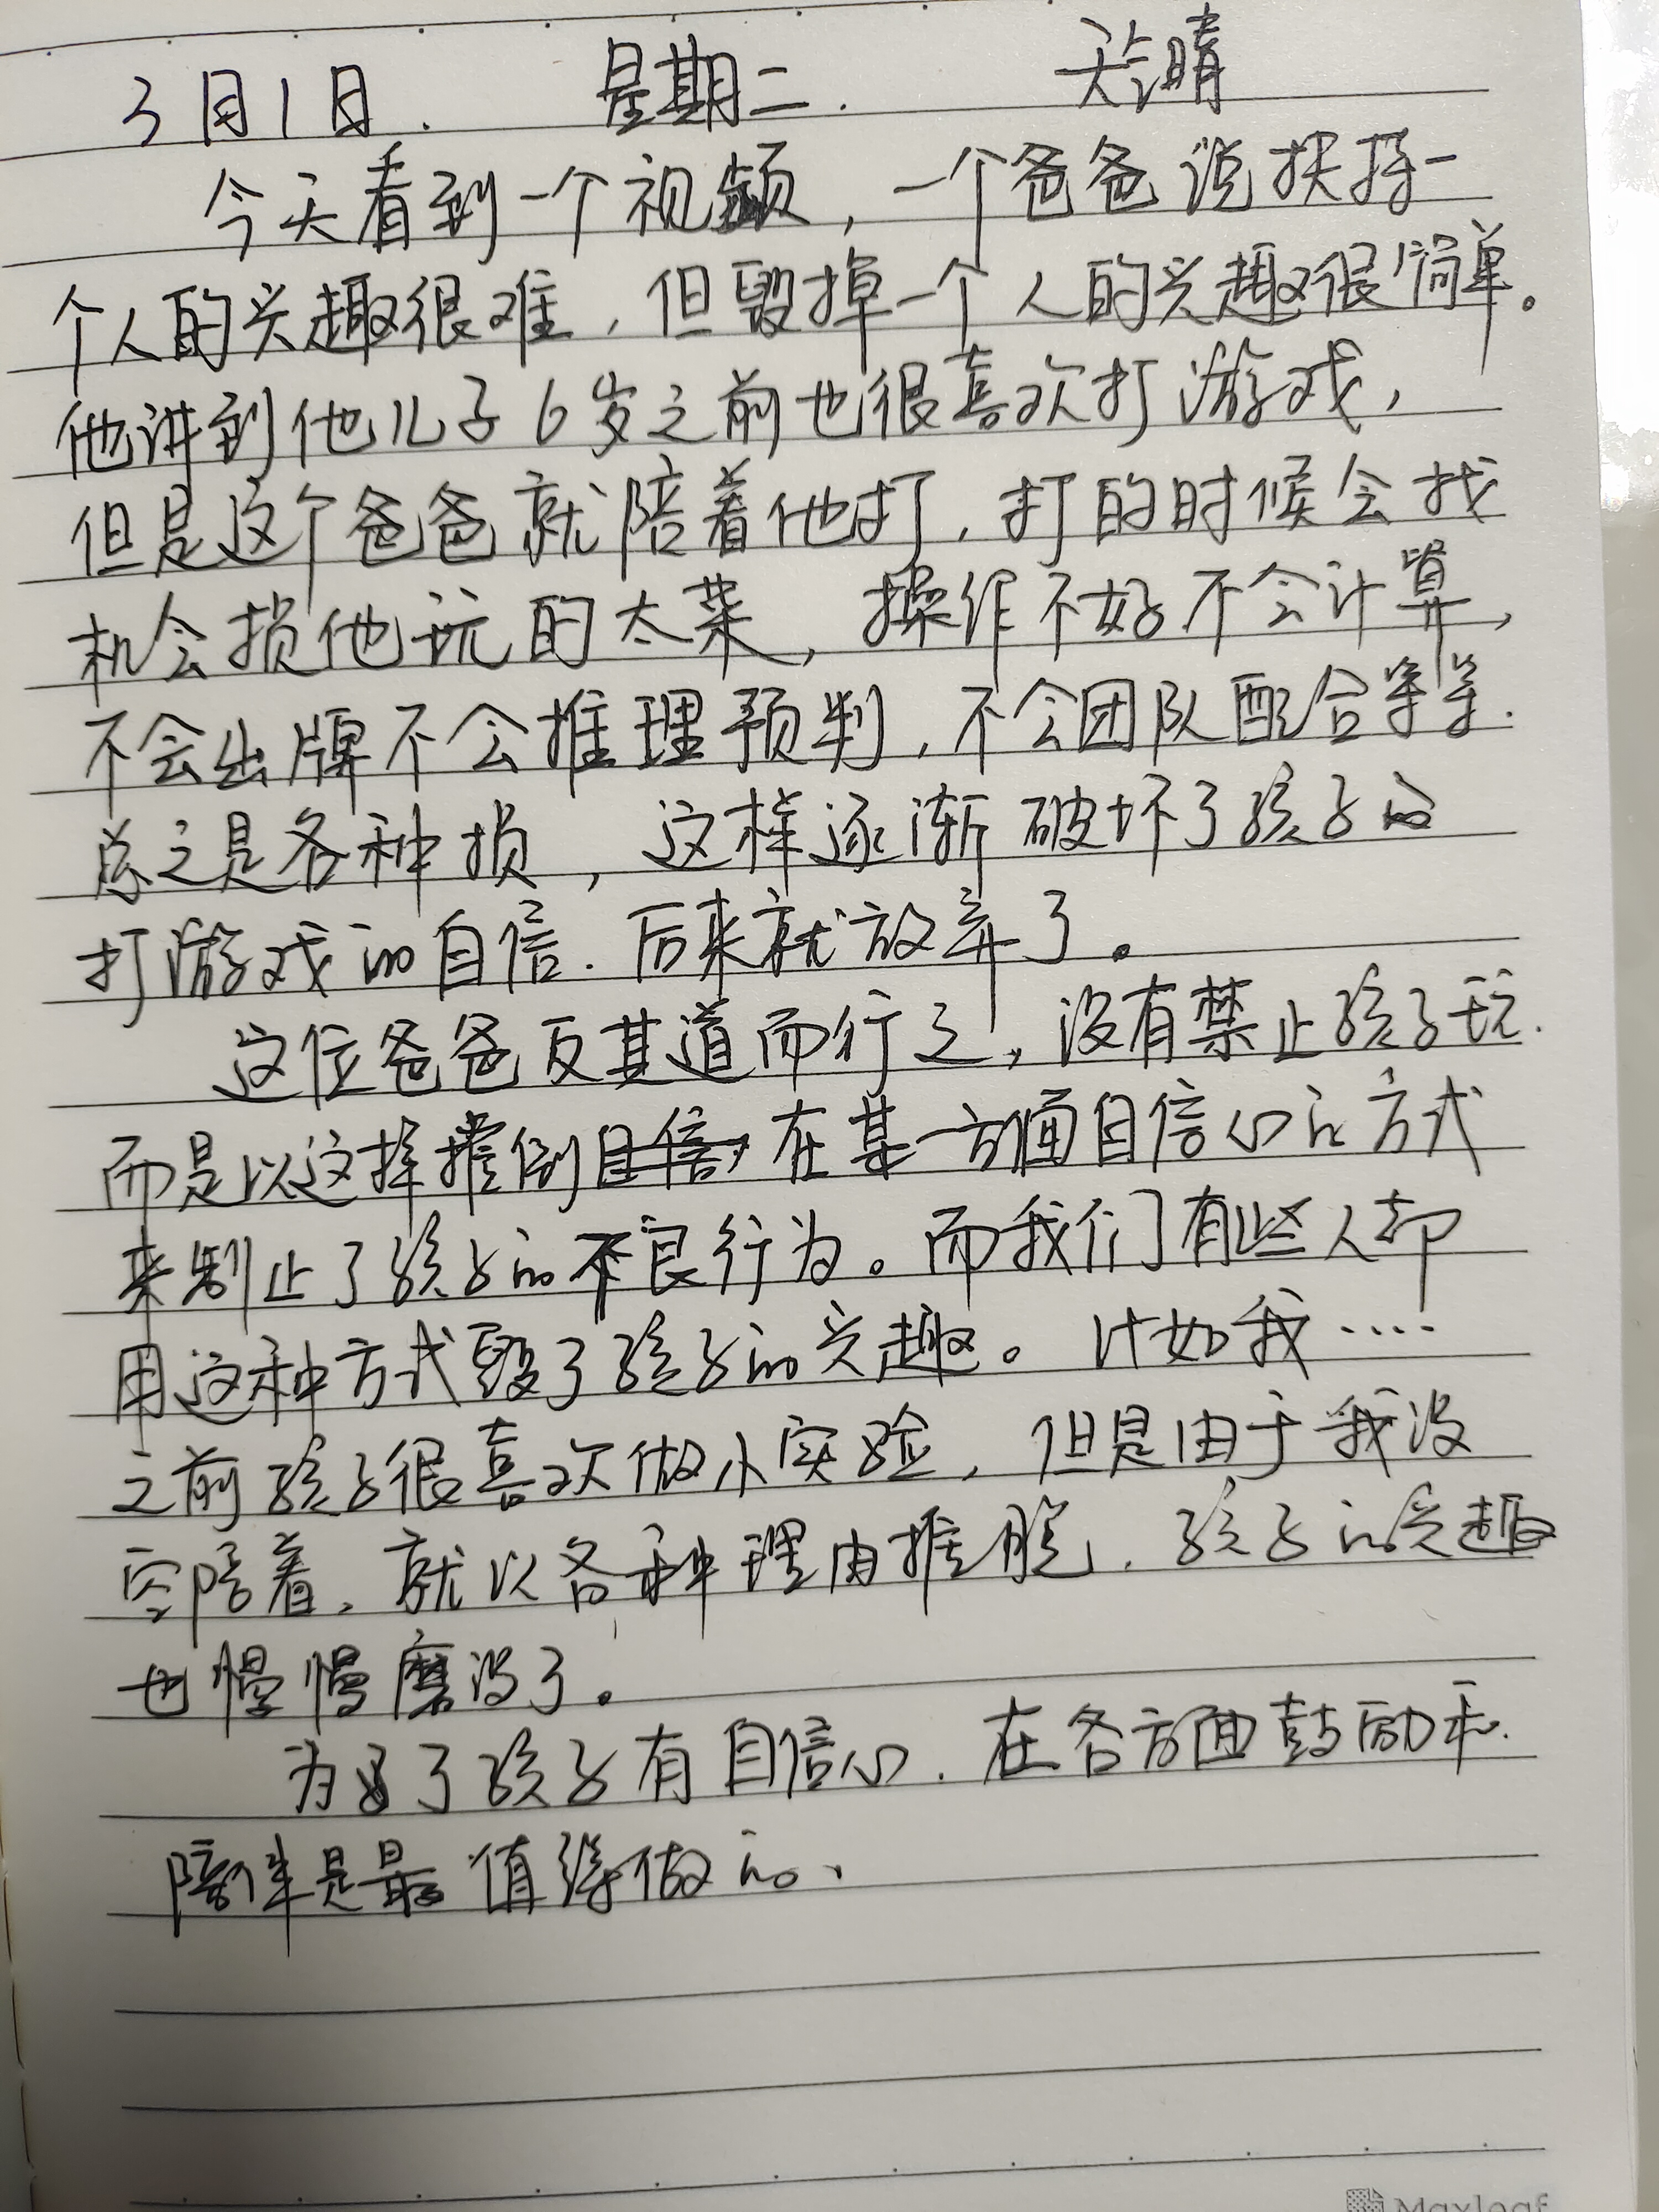 3月1日. 星期二. 天气晴
今天看到一个视频，一个爸爸说扶持一
个人的兴趣很难，但毁掉一个人的兴趣很简单。
他讲到他儿子6岁之前也很喜欢打游戏，
但是这个爸爸就陪着他打，打的时候会找
机会损他玩的太菜，操作不好不会计算，
不会出牌不会推理预判，不会团队配合等等.
总之是各种损，这样逐渐破坏了孩子的
打游戏的自信.后来就放弃了。
这位爸爸反其道而行之，没有禁止孩子玩.
而是以这样摧倒在某一方面自信心的方式
来制止了孩子的不良行为。而我们有些人却
用这种方式毁了孩子的兴趣。比如我....
之前孩子很喜欢做小实验，但是由于我没
空陪着，就以各种理由推脱，孩子的兴趣
也慢慢磨没了。
为了孩子有自信心.在各方面鼓励和.
陪伴是最值得做的、
Maxleaf